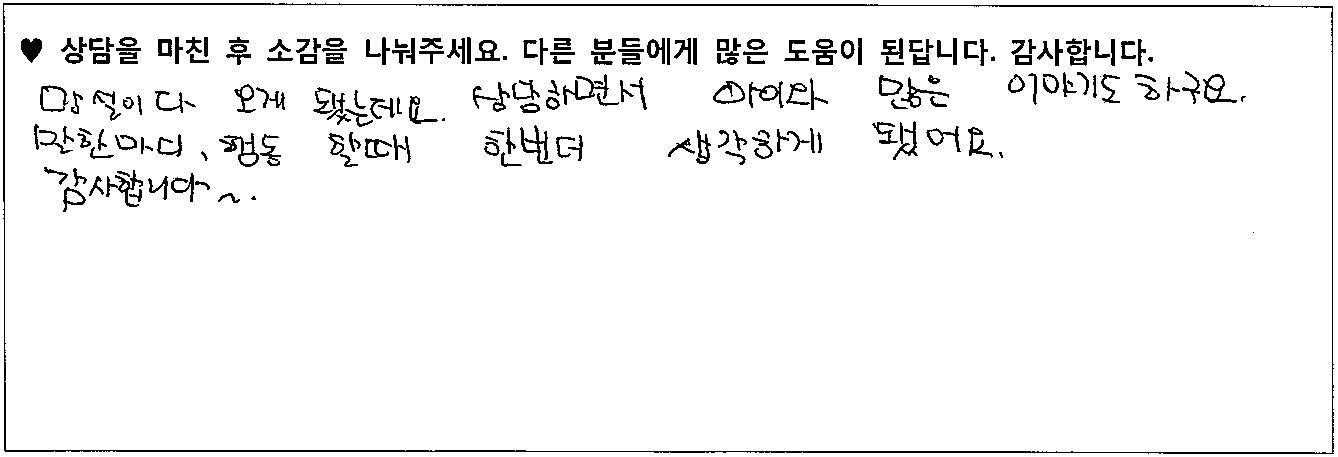 ♥ 상담을 마친 후 소감을 나눠주세요. 다른 분들에게 많은 도움이 된답니다. 감사합니다.
망설이다 오게 됐는데요. 상담하면서 아이와 많은 이야기도 하구요.
말한마디, 행동 할때 한번더 생각하게 됐어요.
감사합니다~.